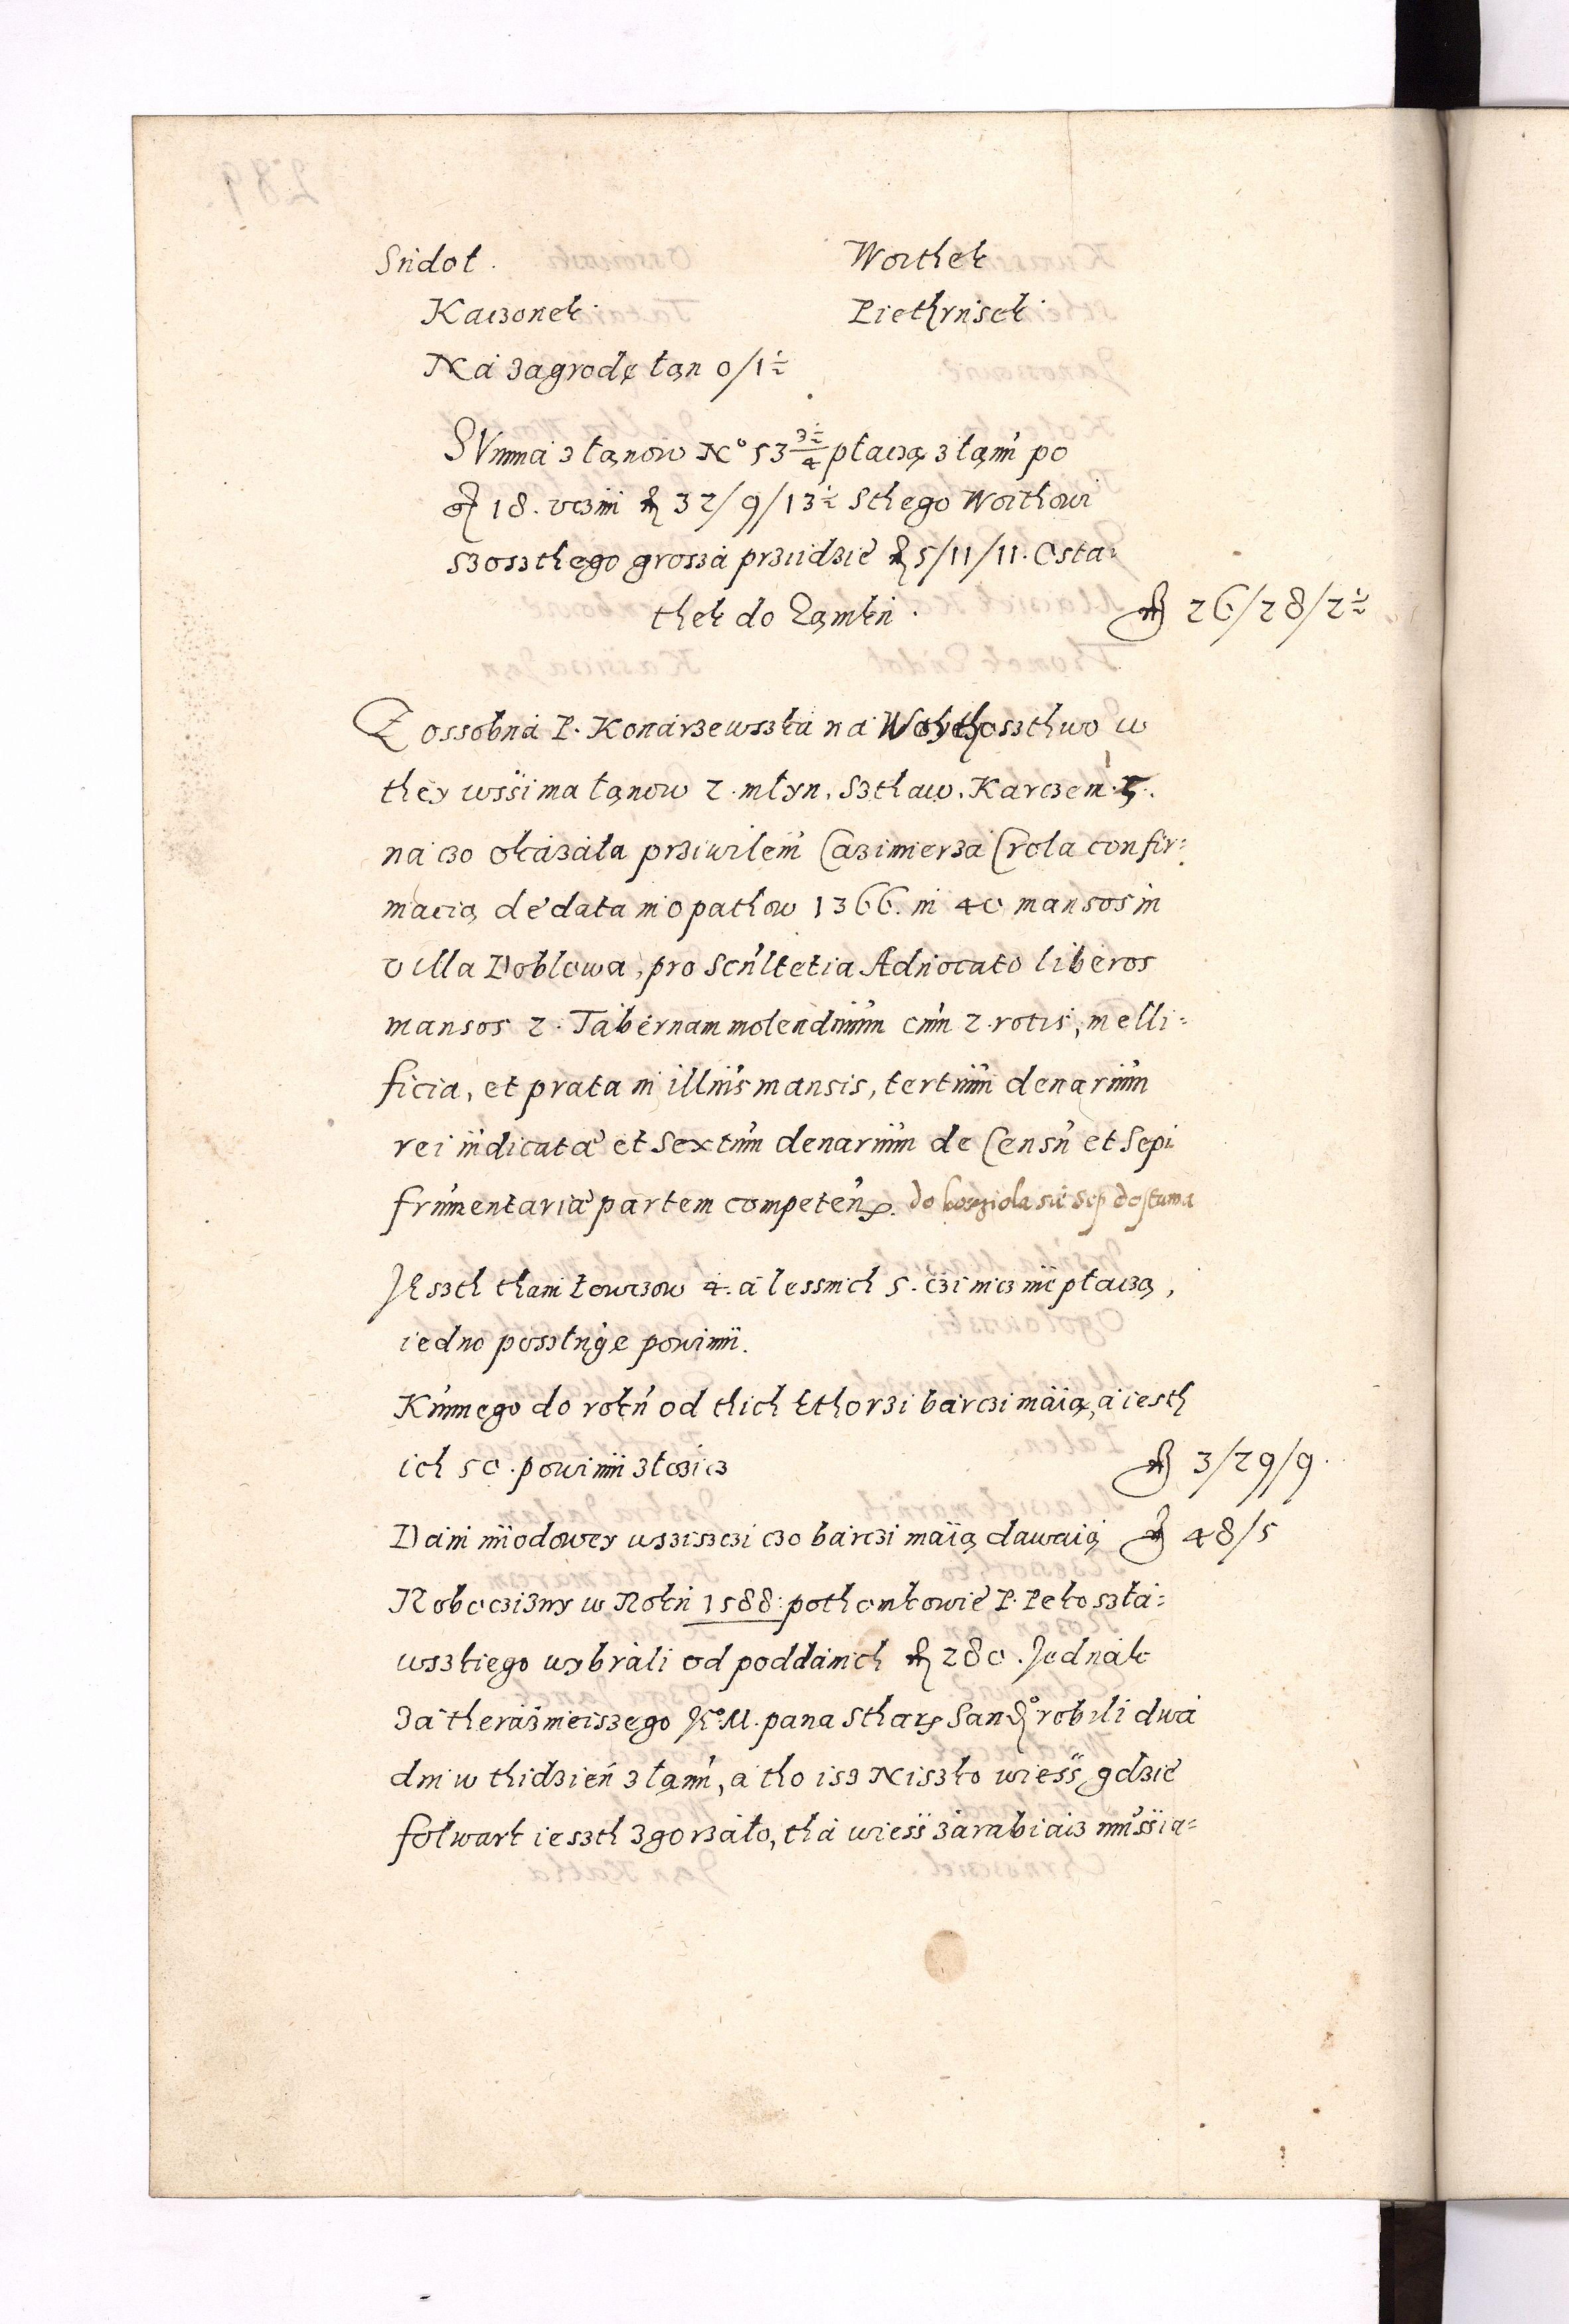 Sudoł. Worthek
Kaczonek Piethrusek
Na zagrodę łan 0/1½
SVmma z łanow No 53 3½/4 płaczą z łanu po
gr 18. vczini fl 32/9/13½ Sthego Woithowi
szosthego grossa prziidzie fl 5/11/11. Osta-
thek do Zamku. fl 26/28/2½
Z ossobna P. Konarzewszka na Woythosthwo w
they wssi ma łanow 2. młyn, Szthaw, Karczem.
na czo okazała prziwilem Cazimierza Crola confir-
macią de data in Opathow 1366. in 40 mansos in
villa Doblowa, pro Scultetia Aduocato liberos
mansos 2. Tabernam molendinum cum 2 rotis, melli-
ficia, et prata in illius mansis, tertium denarium
rei iudicatae et Sextum denarium de Censu et Sepi
frumentariae partem competen. do kosziola sie Sep dostawa
Jeszth tham Łowczow 4. a lessnich 5. czi nicz nie płaczą,
iedno posługe powinni.
Kunnego do roku od thich kthorzi barczi maią, a iesth
ich 50. powinni złozicz fl 3/29/9.
Dani miodowey wsziszczi czo barczi maią dawaią fl 48/5
Roboczizny w Roku 1588: pothomkowie P. Pekoszła-
wszkiego wybrali od poddanich fl 280. Jednak
za theraznieiszego Jo M. pana Stharo Sando robili dwa
dni w thidzień z łanu, a tho isz Niszko wieś, gdzie
folwark ieszth zgorzało, tha wieś zarabiacz mussia-